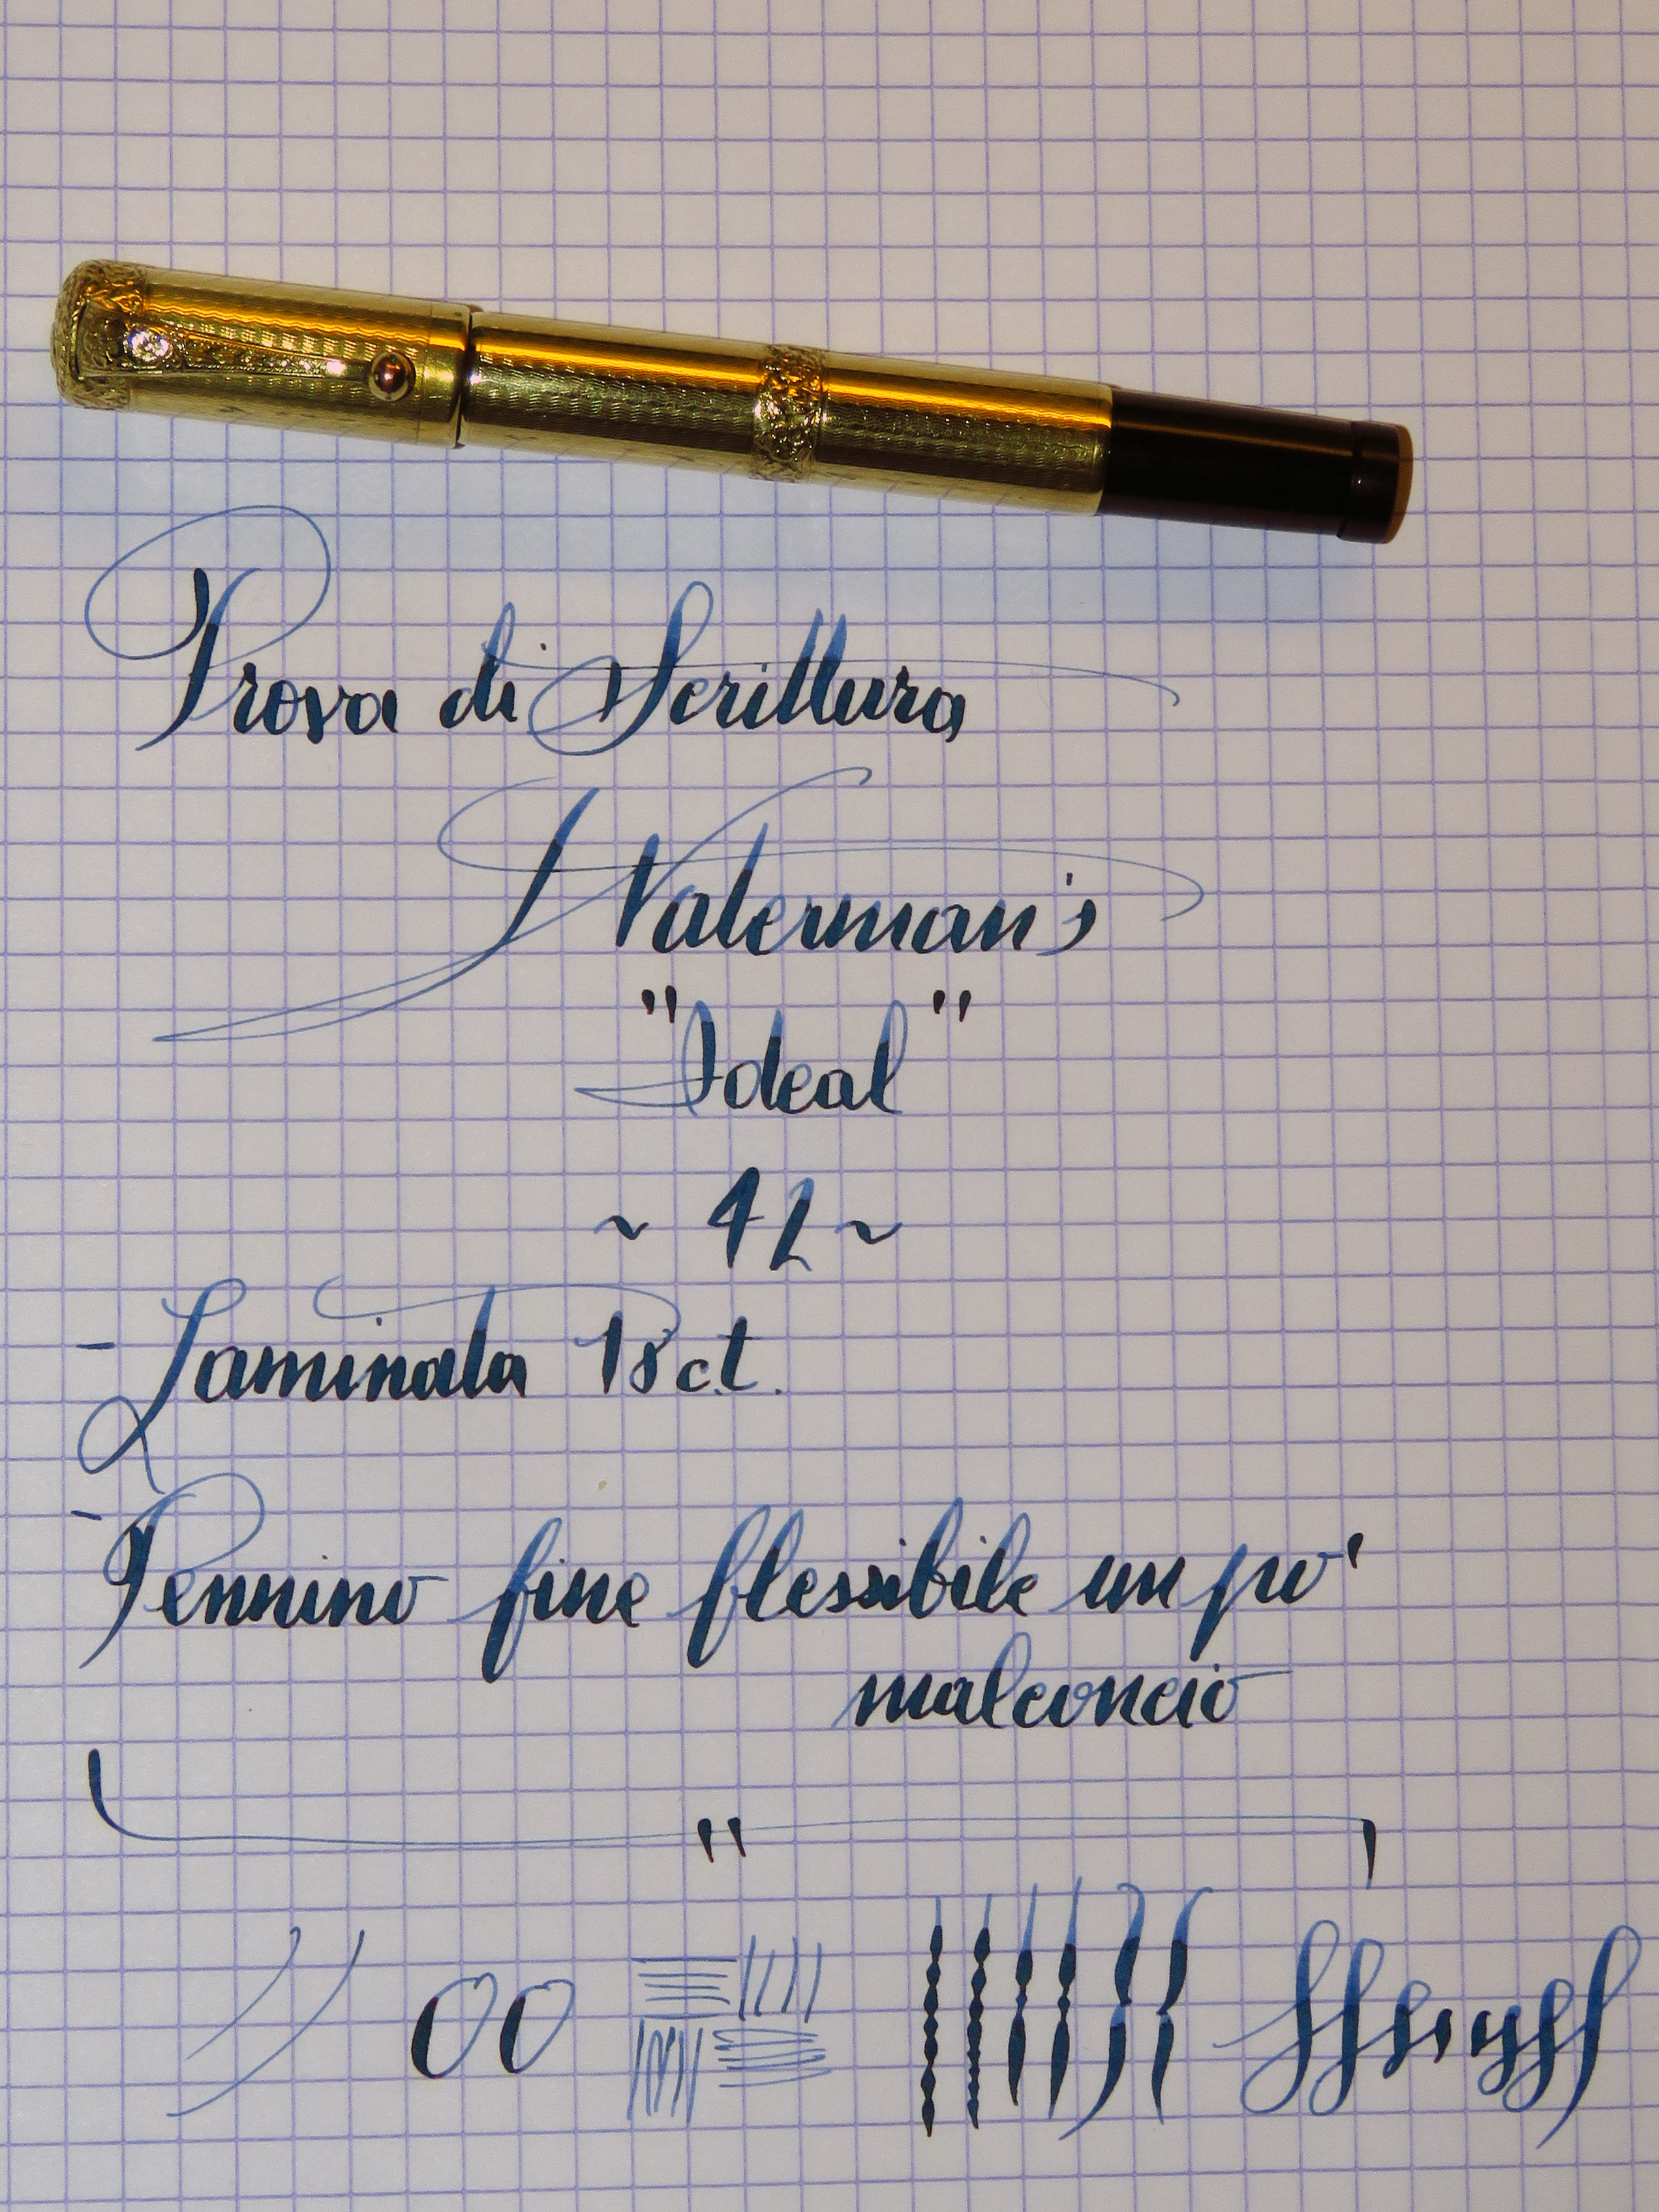 Prova di Scrittura
Waterman's
"Ideal"
~ 42 ~
- Laminata 18 ct.
- Pennino fine flessibile un po'
malconcio